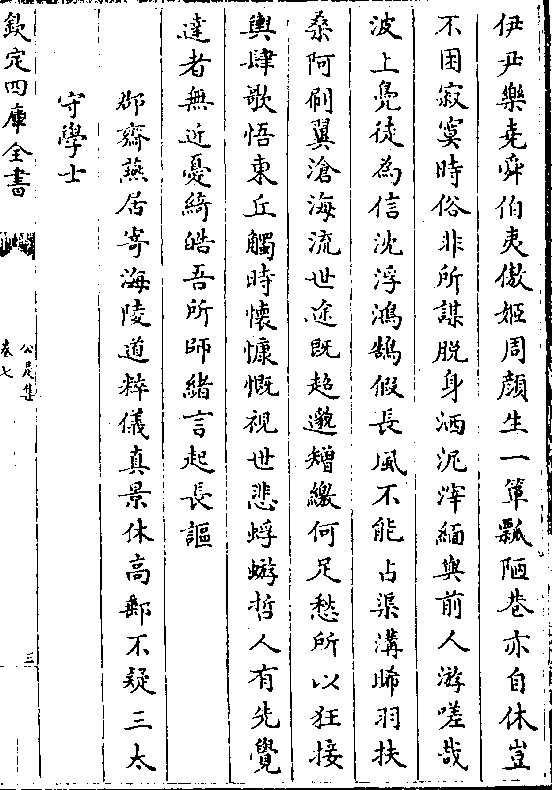 伊尹樂堯舜伯夷傲姬周顔生一簞瓢陋巷亦自休豈
不困寂寞時俗非所謀脱身洒泥滓緬與前人游嗟哉
波上鳧徒為信沈浮鴻鵠假長風不能占渠溝晞羽扶
桑阿刷翼滄海流世途既超邈矰繳何足愁所以狂接
輿肆歌悟東丘觸時懷慷慨視世悲蜉蝣哲人有先覺
達者無近憂綺皓吾所師緒言起長謳
郡齋燕居寄海陵道粹儀真景休高郵不疑三太
守學士
欽定四庫全書
公是集
卷七
三